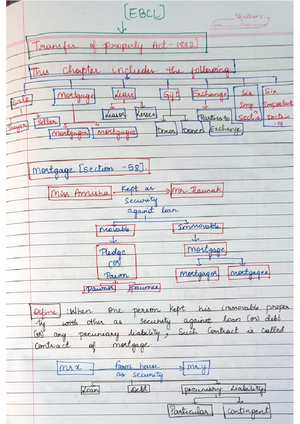 [EBCL]
Transfer of property Act-1882
This Chapter includes the following
Sale Mortgage Lease Gift Exchange Six Six
Imp. Important
Seller Lessor Lessee Parties to
Mortgagor Mortgagee Donor Donee Exchange
Mortgage [Section -58]
Miss Anusha Kept as Mr Raunak
security
against loan
Movable Immovable
Pledge Mortgage
(or)
Pawn Mortgagor mortgagee
Pawnor Pawnee
Define : When one person kept his immovable proper
ty with other as security against loan (or) debt
(or) any pecuniary liability, such Contract is called
Contract of mortgage
Mr x farm house Mr y
as security
Loan Debt pecuniary liability
Particular Contingent